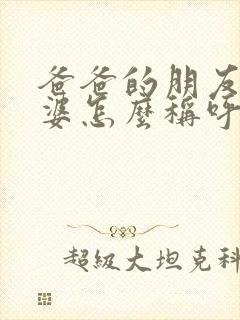 爸爸的朋友
婆怎麼稱呼
超級大坦克科